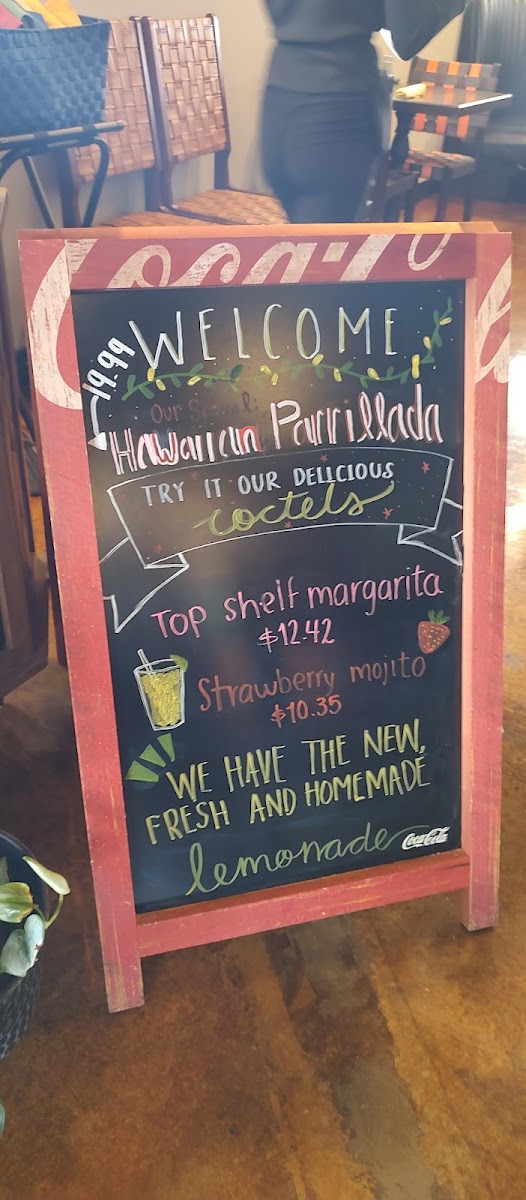 Coca-Co
WELCOME
19.99
Our
Hawaiian Parrillada
TRY IT OUR DELICIOUS
coctels
Top shelf margarita
$12.42
Strawberry mojito
$10.35
WE HAVE THE NEW,
FRESH AND HOMEMADE
lemonade
Coca-Cola